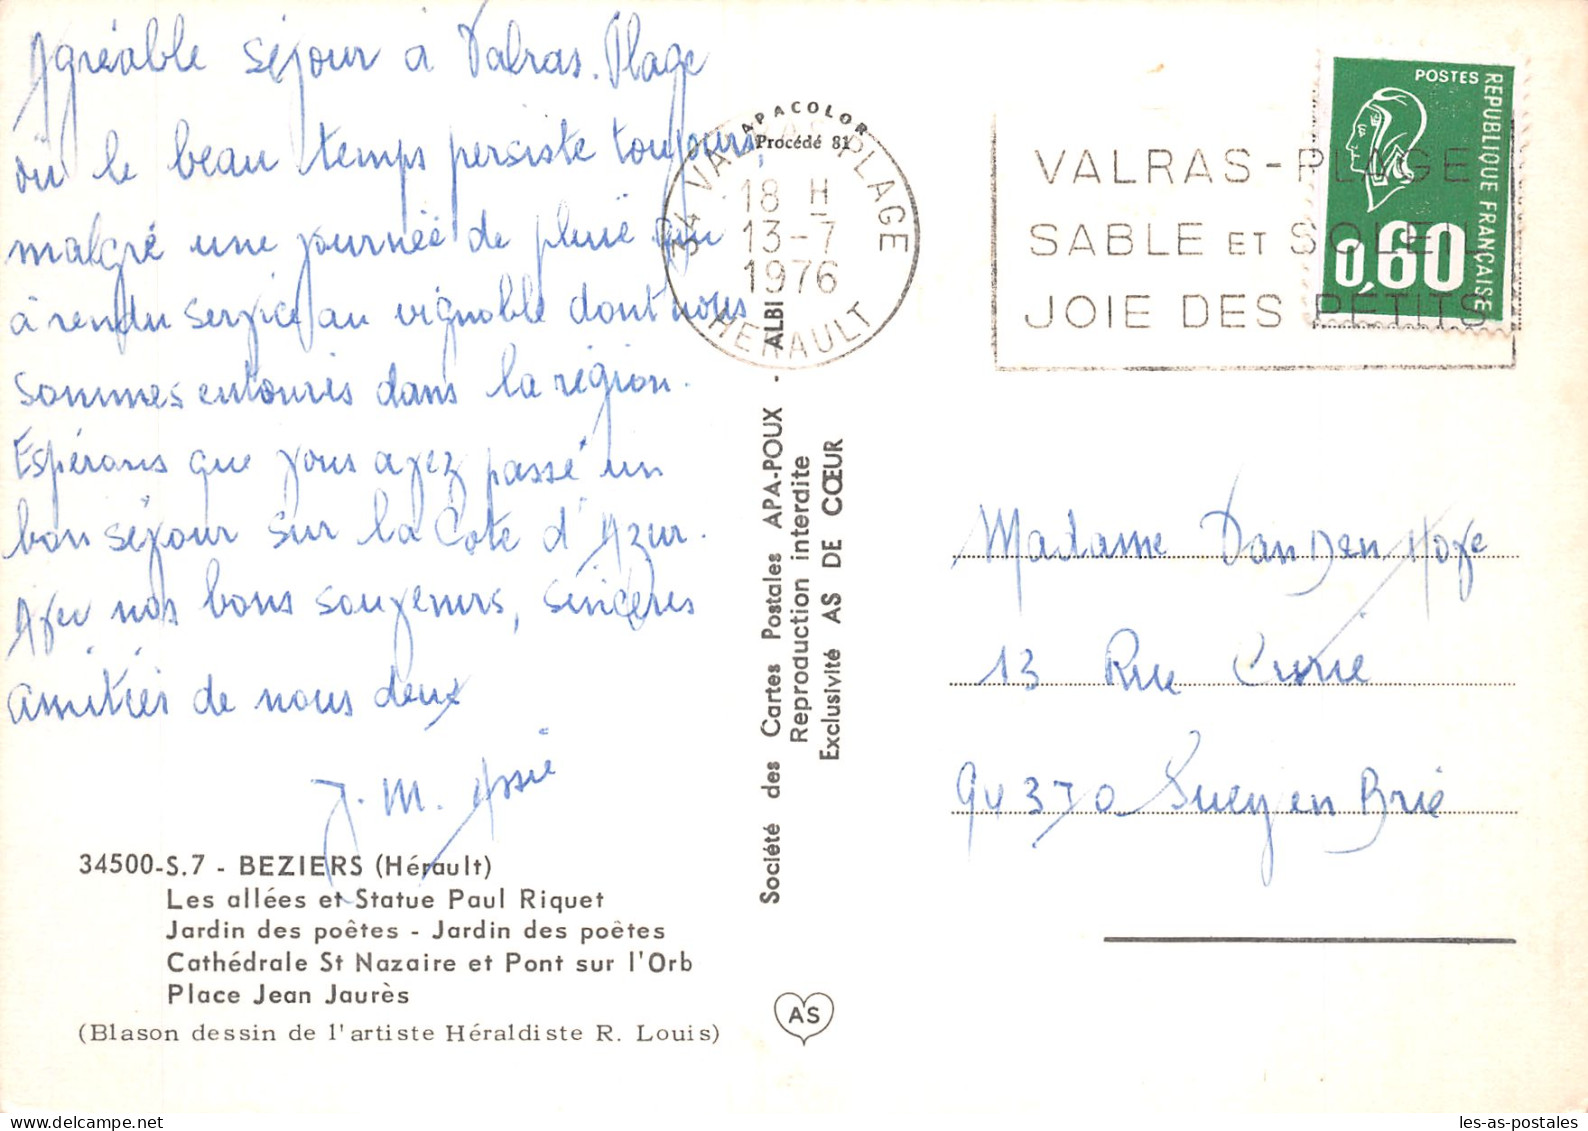 Agréable séjour à Valras.Plage
où le beau temps persiste toujours,
malgré une journée de pluie qui
a rendu service au vignoble dont nous
sommes entourés dans la région.
Espérons que vous ayez passé un
bon séjour sur la Cote d'Azur.
Avec nos bons souvenirs, sincères
amitiés de nous deux
J. M. Assié
34500-S.7 - BEZIERS (Hérault)
Les allées et Statue Paul Riquet
Jardin des poêtes - Jardin des poêtes
Cathédrale St Nazaire et Pont sur l'Orb
Place Jean Jaurès
(Blason dessin de l'artiste Héraldiste R. Louis)
APACOLOR
Procédé 81
34 VALRAS PLAGE
18 H
13-7
1976
HERAULT
Société des Cartes Postales APA-POUX - ALBI
Reproduction interdite
Exclusivité AS DE CŒUR
AS
VALRAS-PLAGE
SABLE ET SOLEIL
JOIE DES PETITS
POSTES
REPUBLIQUE FRANÇAISE
0,60
Madame VanDen Hove
13 Rue Curie
94370 Sucy en Brie
les-as-postales